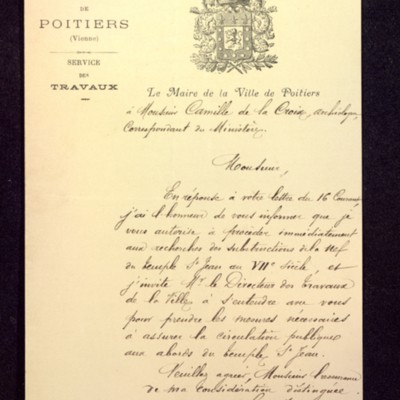 DE
POITIERS
(Vienne)
SERVICE
DES
TRAVAUX
Le Maire de la Ville de Poitiers
à Monsieur Camille de la Croix, archéologue,
Correspondant du Ministère.
Monsieur,
En réponse à votre lettre du 16 Courant,
j'ai l'honneur de vous informer que je
vous autorise à procéder immédiatement
aux recherches des substructions de la nef
du temple St Jean au VIIe siècle, et
j'invite Mr le Directeur des Travaux
de la Ville à s'entendre avec vous
pour prendre les mesures nécessaires
à assurer la circulation publique
aux abords du temple St Jean.
Veuillez agréer, Monsieur, l'assurance
de ma considération distinguée.